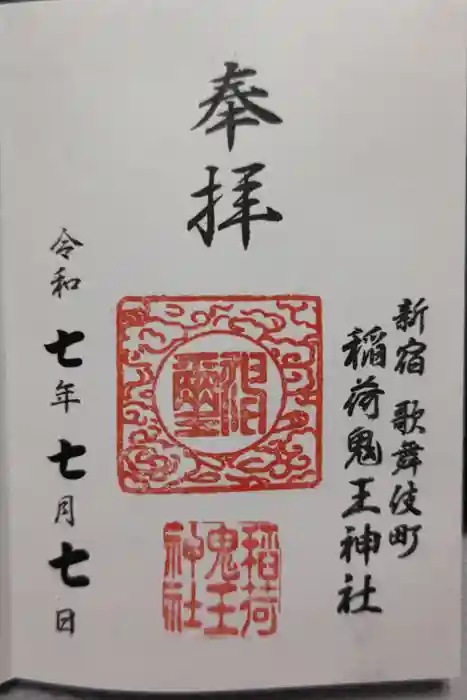 新宿 歌舞伎町
稲荷鬼王神社
奉拝
稲荷
鬼王
神社
令和七年七月七日